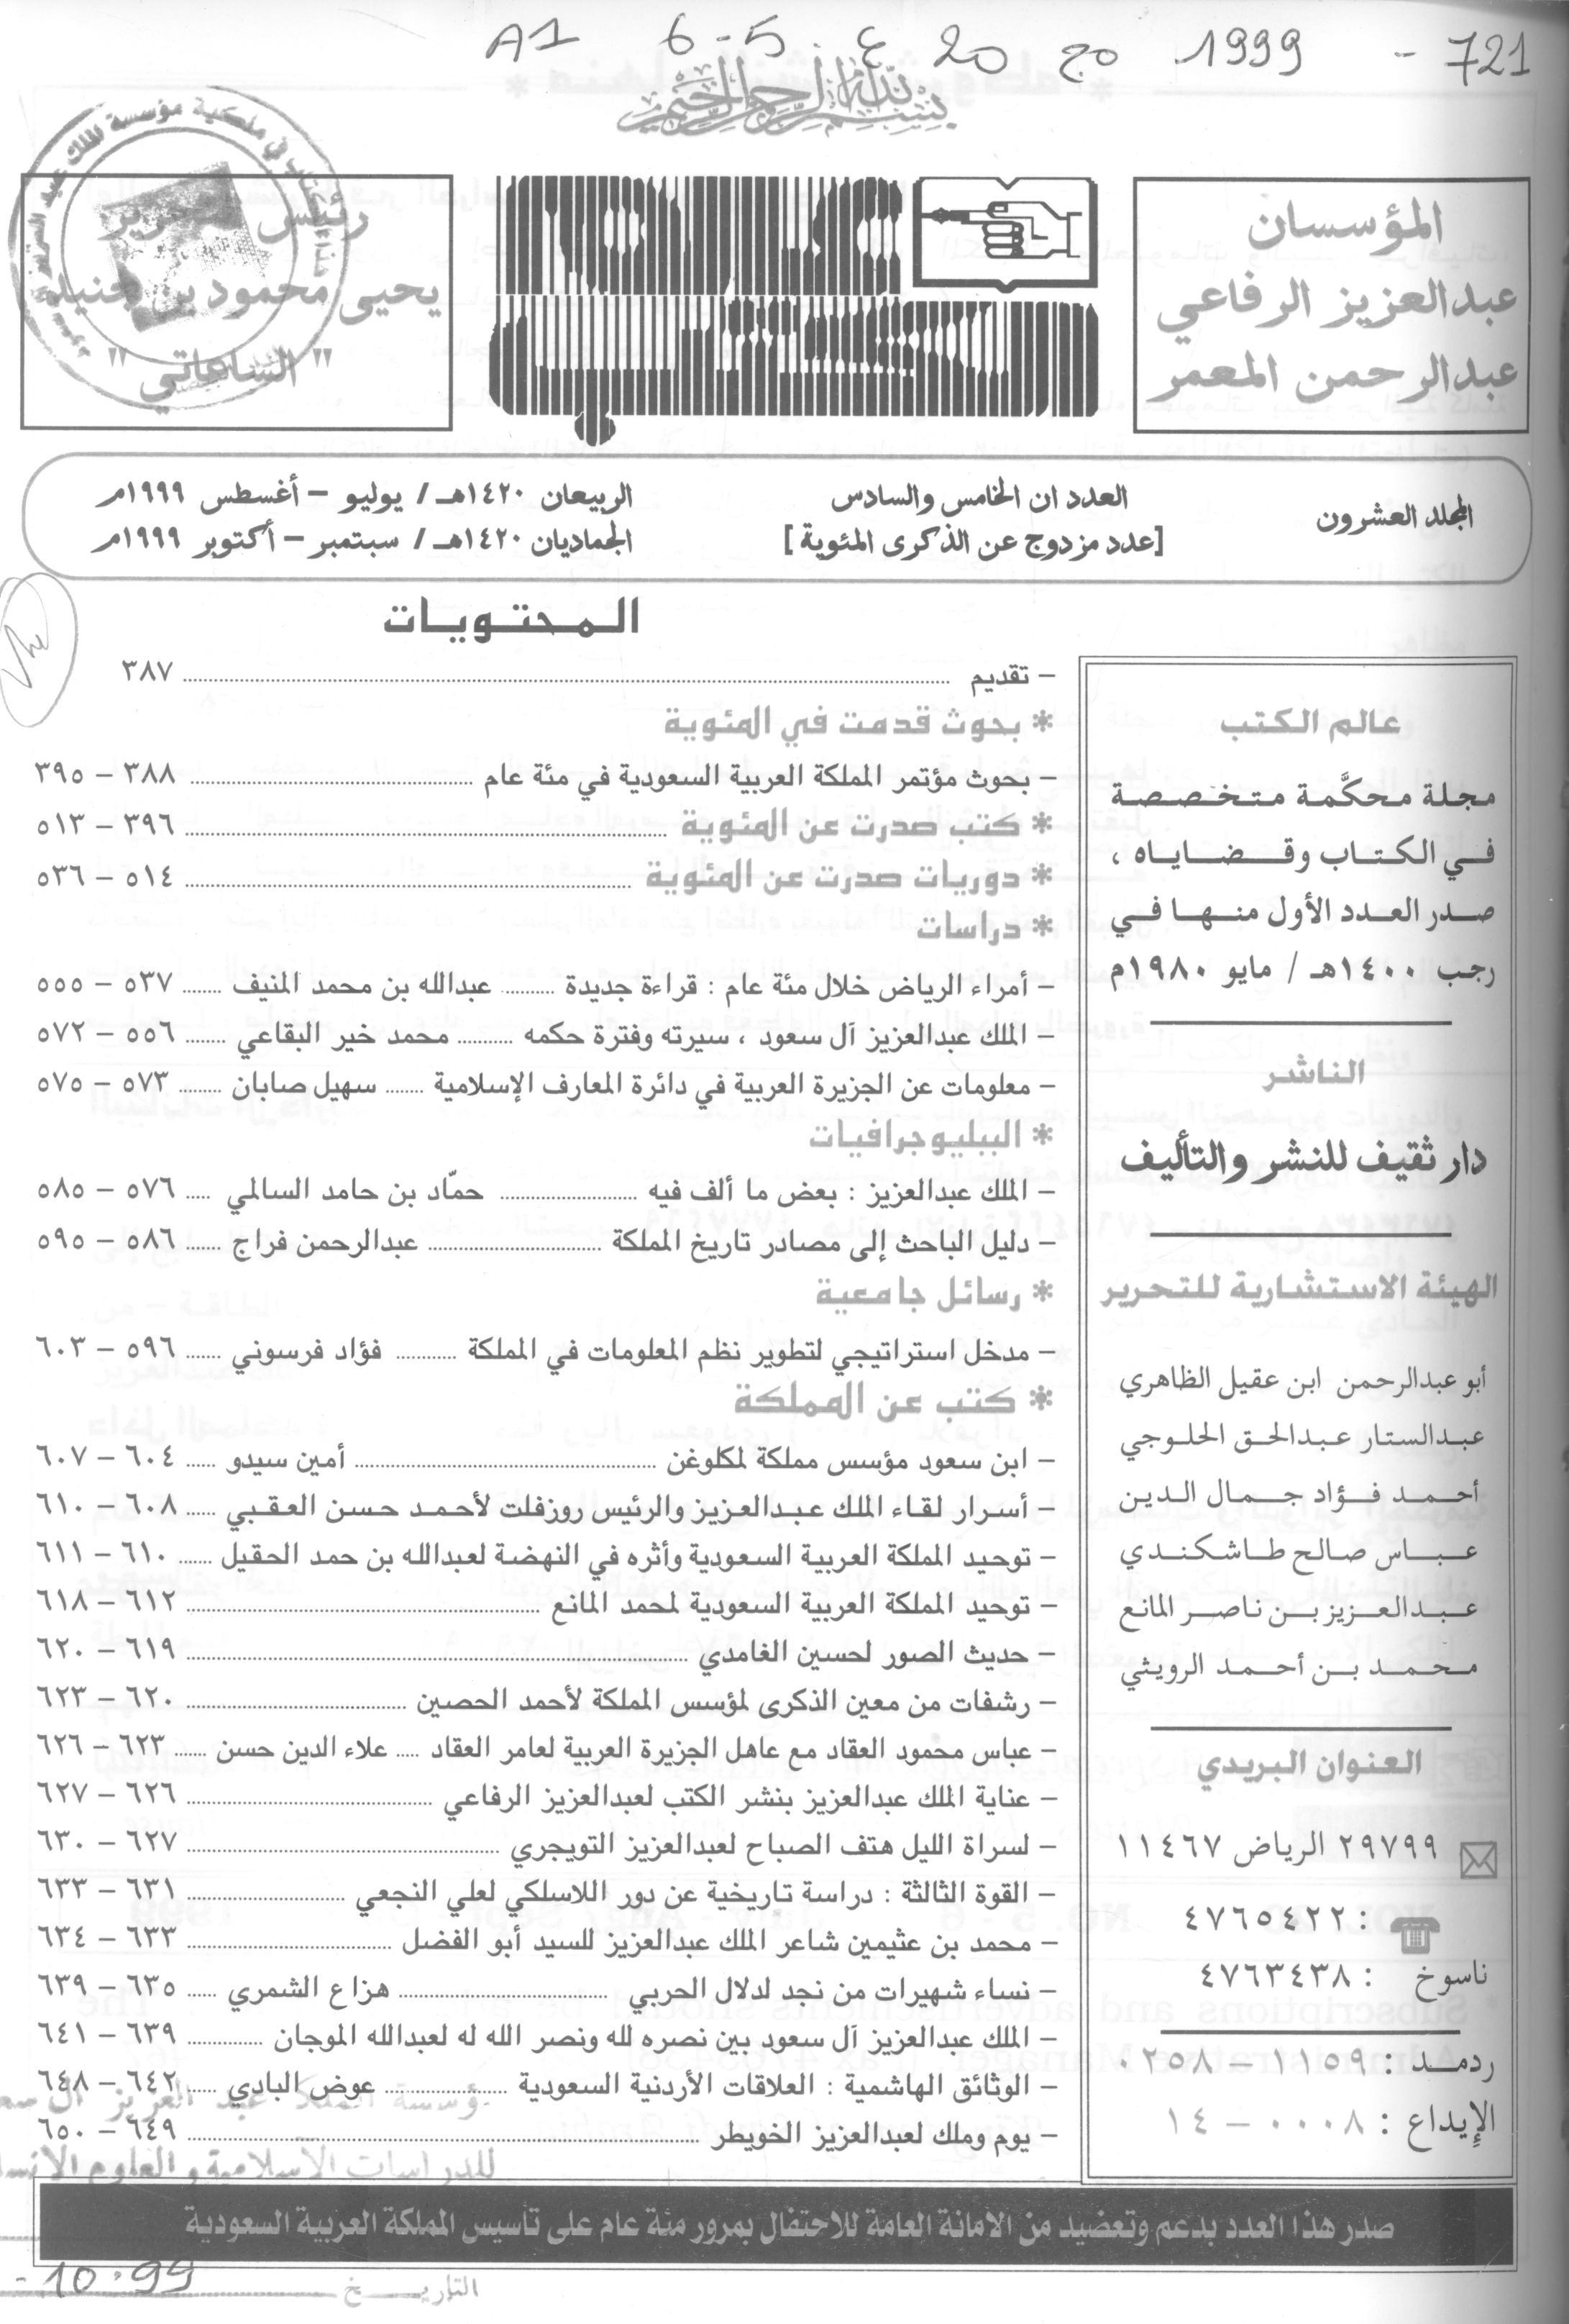 A1 6-5 ع 20 مج 1999 - 721
بسم الله الرحمن الرحيم
المؤسسان
عبدالعزيز الرفاعي
عبدالرحمن المعمر
عالم الكتب
رئيس التحرير
يحيى محمود بن جنيد
" الساعاتي "
المجلد العشرون
العددان الخامس والسادس
[عدد مزدوج عن الذكرى المئوية]
الربيعان ١٤٢٠هـ / يوليو – أغسطس ١٩٩٩م
الجماديان ١٤٢٠هـ / سبتمبر – أكتوبر ١٩٩٩م
عالم الكتب
مجلة محكَّمة متخصصة
في الكتاب وقضاياه ،
صدر العدد الأول منها في
رجب ١٤٠٠هـ / مايو ١٩٨٠م
الناشر
دار ثقيف للنشر والتأليف
الهيئة الاستشارية للتحرير
أبو عبدالرحمن ابن عقيل الظاهري
عبدالستار عبدالحق الحلوجي
أحمد فؤاد جمال الدين
عباس صالح طاشكندي
عبدالعزيز بن ناصر المانع
محمد بن أحمد الرويثي
العنوان البريدي
٢٩٧٩٩ الرياض ١١٤٦٧
: ٤٧٦٥٤٢٢
ناسوخ : ٤٧٦٣٤٣٨
ردمد : ١١٥٩ – ٠٢٥٨
الإيداع : ٠٠٠٨ – ١٤
المحتويات
– تقديم ........ ٣٨٧
* بحوث قدمت في المئوية
– بحوث مؤتمر المملكة العربية السعودية في مئة عام ........ ٣٨٨ – ٣٩٥
* كتب صدرت عن المئوية ........ ٣٩٦ – ٥١٣
* دوريات صدرت عن المئوية ........ ٥١٤ – ٥٣٦
* دراسات
– أمراء الرياض خلال مئة عام : قراءة جديدة ........ عبدالله بن محمد المنيف ....... ٥٣٧ – ٥٥٥
– الملك عبدالعزيز آل سعود ، سيرته وفترة حكمه ........ محمد خير البقاعي ....... ٥٥٦ – ٥٧٢
– معلومات عن الجزيرة العربية في دائرة المعارف الإسلامية ...... سهيل صابان ....... ٥٧٣ – ٥٧٥
* الببليوجرافيات
– الملك عبدالعزيز : بعض ما ألف فيه ........ حمّاد بن حامد السالمي ..... ٥٧٦ – ٥٨٥
– دليل الباحث إلى مصادر تاريخ المملكة ........ عبدالرحمن فراج ...... ٥٨٦ – ٥٩٥
* رسائل جامعية
– مدخل استراتيجي لتطوير نظم المعلومات في المملكة ........ فؤاد فرسوني ...... ٥٩٦ – ٦٠٣
* كتب عن المملكة
– ابن سعود مؤسس مملكة لمكلوغن ........ أمين سيدو ..... ٦٠٤ – ٦٠٧
– أسرار لقاء الملك عبدالعزيز والرئيس روزفلت لأحمد حسن العقبي ..... ٦٠٨ – ٦١٠
– توحيد المملكة العربية السعودية وأثره في النهضة لعبدالله بن حمد الحقيل ...... ٦١٠ – ٦١١
– توحيد المملكة العربية السعودية لمحمد المانع ........ ٦١٢ – ٦١٨
– حديث الصور لحسين الغامدي ........ ٦١٩ – ٦٢٠
– رشفات من معين الذكرى لمؤسس المملكة لأحمد الحصين ........ ٦٢٠ – ٦٢٣
– عباس محمود العقاد مع عاهل الجزيرة العربية لعامر العقاد ..... علاء الدين حسن ...... ٦٢٣ – ٦٢٦
– عناية الملك عبدالعزيز بنشر الكتب لعبدالعزيز الرفاعي ........ ٦٢٦ – ٦٢٧
– لسراة الليل هتف الصباح لعبدالعزيز التويجري ........ ٦٢٧ – ٦٣٠
– القوة الثالثة : دراسة تاريخية عن دور اللاسلكي لعلي النجعي ........ ٦٣١ – ٦٣٣
– محمد بن عثيمين شاعر الملك عبدالعزيز للسيد أبو الفضل ........ ٦٣٣ – ٦٣٤
– نساء شهيرات من نجد لدلال الحربي ........ هزاع الشمري ..... ٦٣٥ – ٦٣٩
– الملك عبدالعزيز آل سعود بين نصره لله ونصر الله له لعبدالله الموجان ........ ٦٣٩ – ٦٤١
– الوثائق الهاشمية : العلاقات الأردنية السعودية ........ عوض البادي ..... ٦٤٢ – ٦٤٨
– يوم وملك لعبدالعزيز الخويطر ........ ٦٤٩ – ٦٥٠
مؤسسة الملك عبد العزيز آل سعود
للدراسات الاسلامية و العلوم الانسا
صدر هذا العدد بدعم وتعضيد من الأمانة العامة للاحتفال بمرور مئة عام على تأسيس المملكة العربية السعودية
التاريخ 10.99 -